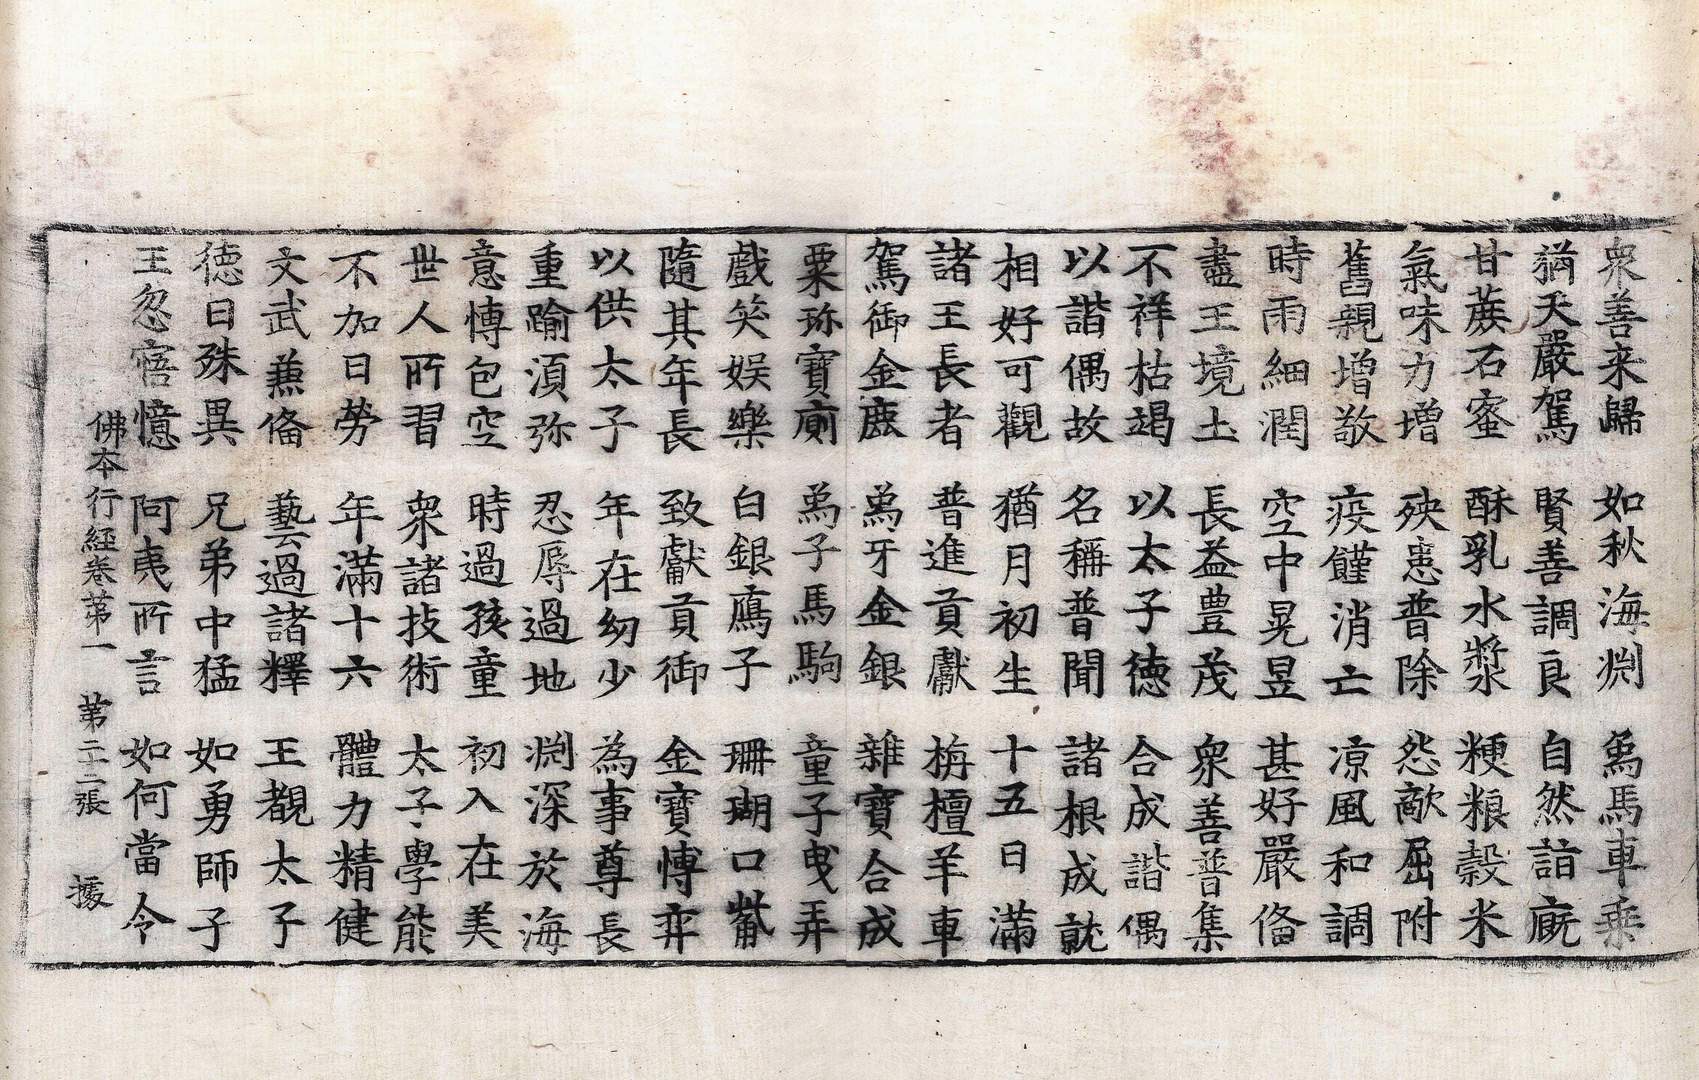 衆善来歸　如秋海渕　象馬車乗
猶天嚴駕　賢善調良　自然詣廐
甘蔗石蜜　酥乳水漿　粳粮穀米
氣味力增　殃患普除　怨敵屈附
舊親增敬　疫饉消亡　凉風和調
時雨細潤　空中晃昱　甚好嚴俻
盡王境土　長益豊茂　衆善普集
不祥枯竭　以太子德　合成諧偶
以諧偶故　名稱普聞　諸根成就
相好可觀　猶月初生　十五日滿
諸王長者　普進貢獻　栴檀羊車
駕御金鹿　象牙金銀　雜寶合成
粟珎寶廁　象子馬駒　童子曵弄
戲笑娱樂　白銀鷹子　珊瑚口觜
隨其年長　致獻貢御　金寶慱弈
以供太子　年在幼少　為事尊長
重踰湏弥　忍辱過地　渕深於海
意慱包空　時過孩童　初入在美
世人所習　衆諸技術　太子學能
不加日勞　年滿十六　體力精健
文武兼俻　藝過諸釋　王覩太子
德日殊異　兄弟中猛　如勇師子
王忽寤憶　阿夷所言　如何當令
佛本行經卷第一　第二十二張　據